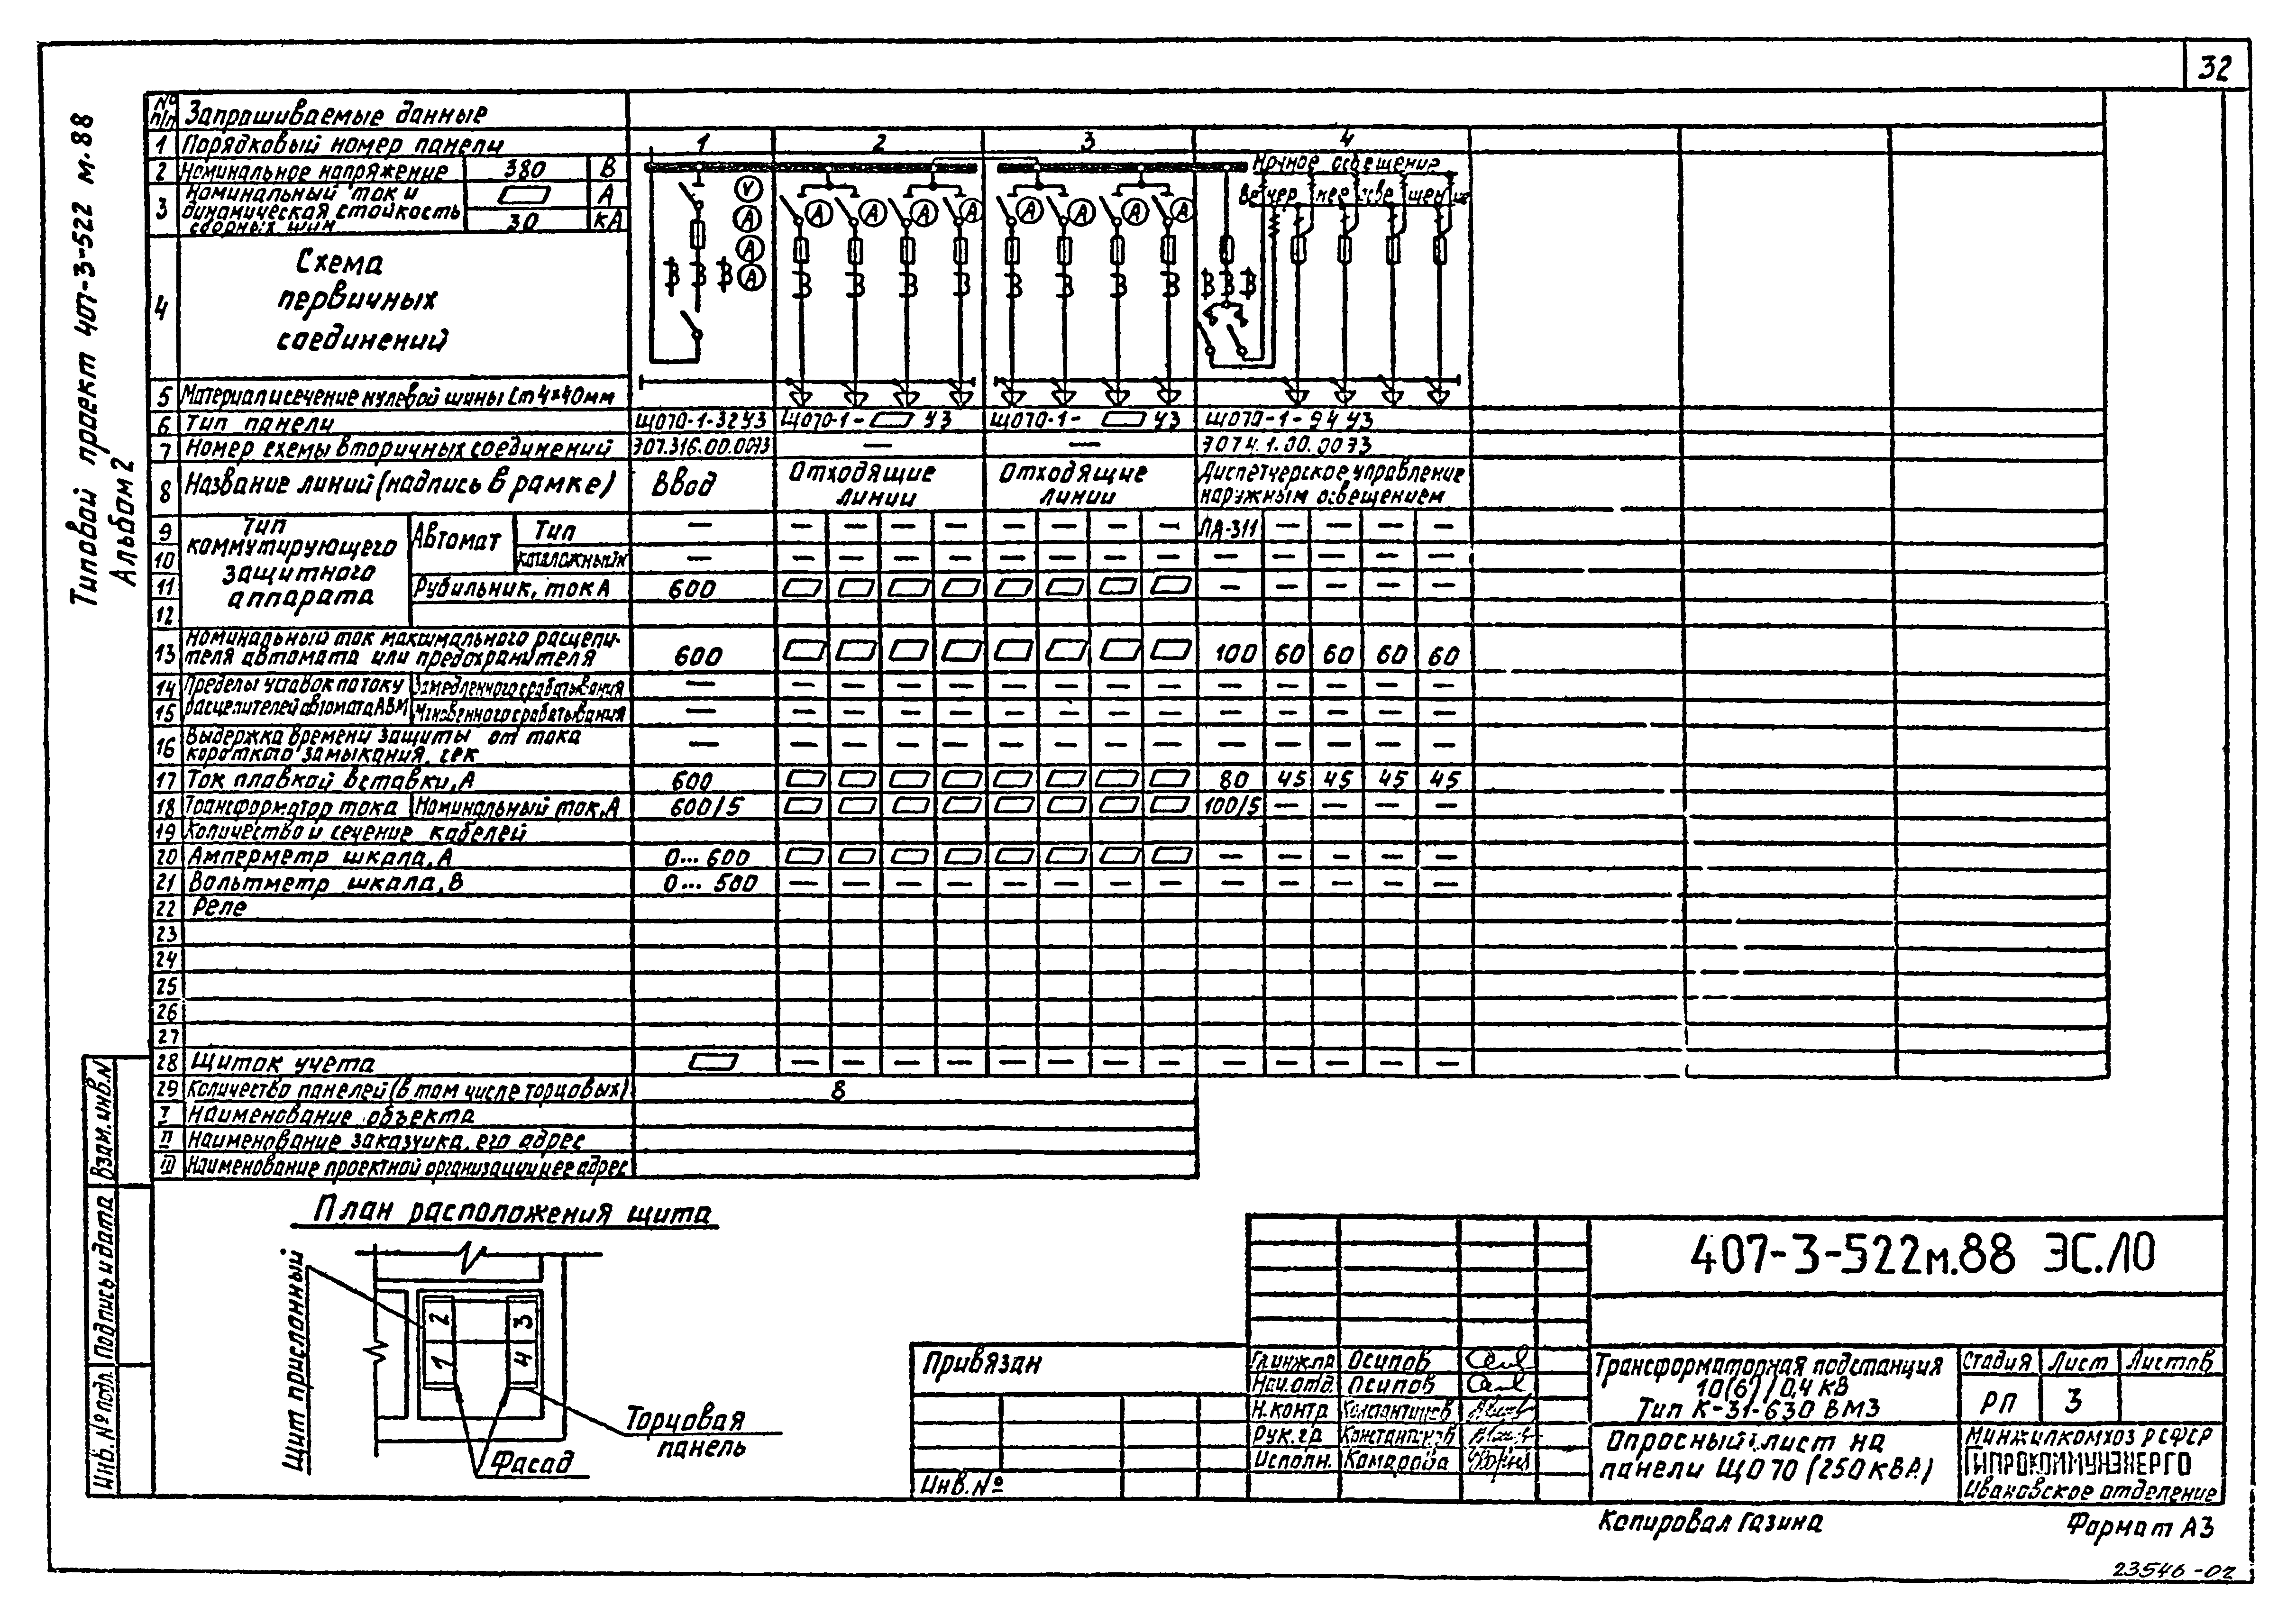 32
Типовой проект 407-3-522 м.88
Альбом 2
№ п/п Запрашиваемые данные
1 Порядковый номер панели 1 2 3 4
2 Номинальное напряжение 380 В
3 Номинальный ток и динамическая стойкость сборных шин А
30 кА
4 Схема первичных соединений
V
А
А
А
А А А А А А А А
Ночное освещение
Вечернее освещение
5 Материал и сечение нулевой шины Ст 4×40мм
6 Тип панели ЩО70-1-32У3 ЩО70-1- У3 ЩО70-1- У3 ЩО70-1-94У3
7 Номер схемы вторичных соединений — —
8 Название линий (надпись в рамке) Ввод Отходящие линии Отходящие линии Диспетчерское управление наружным освещением
Тип коммутирующего защитного аппарата
9 Автомат Тип — — — — — — — — — ПА-311 — — — —
10 — — — — — — — — — — — — — —
11 Рубильник, ток А 600 — — — — —
12
13 Номинальный ток максимального расцепителя автомата или предохранителя 600 100 60 60 60 60
14 Пределы уставок по току расцепителей автомата АВМ Замедленного срабатывания — — — — — — — — — — — — — —
15 Мгновенного срабатывания — — — — — — — — — — — — — —
16 Выдержка времени защиты от тока короткого замыкания, сек — — — — — — — — — — — — — —
17 Ток плавкой вставки, А 600 80 45 45 45 45
18 Трансформатор тока Номинальный ток, А 600/5 100/5 — — — —
19 Количество и сечение кабелей
20 Амперметр шкала, А 0...600 — — — — —
21 Вольтметр шкала, В 0...500 — — — — — — — — — — — — —
22 Реле
23
24
25
26
27
28 Щиток учета — — — — — — — — — — — — —
29 Количество панелей (в том числе торцовых) 8
I Наименование объекта
II Наименование заказчика, его адрес
III Наименование проектной организации и ее адрес
План расположения щита
Щит прислонный
2 3
1 4
Торцовая панель
Фасад
Взам. инв. №
Подпись и дата
Инв. № подл.
Привязан
Инв. №
407-3-522м.88 ЭС.ЛО
Гл.инж.пр Осипов
Нач.отд. Осипов
Н.контр. Константинов
Рук.гр. Константинов
Исполн. Комарова
Трансформаторная подстанция
10(6)/0,4 кВ
Тип К-31-630 ВМ3
Стадия Лист Листов
РП 3
Опросный лист на
панели ЩО70 (250кВА)
Минжилкомхоз РСФСР
ГИПРОКОММУНЭНЕРГО
Ивановское отделение
Копировал Газина
Формат А3
23546-02